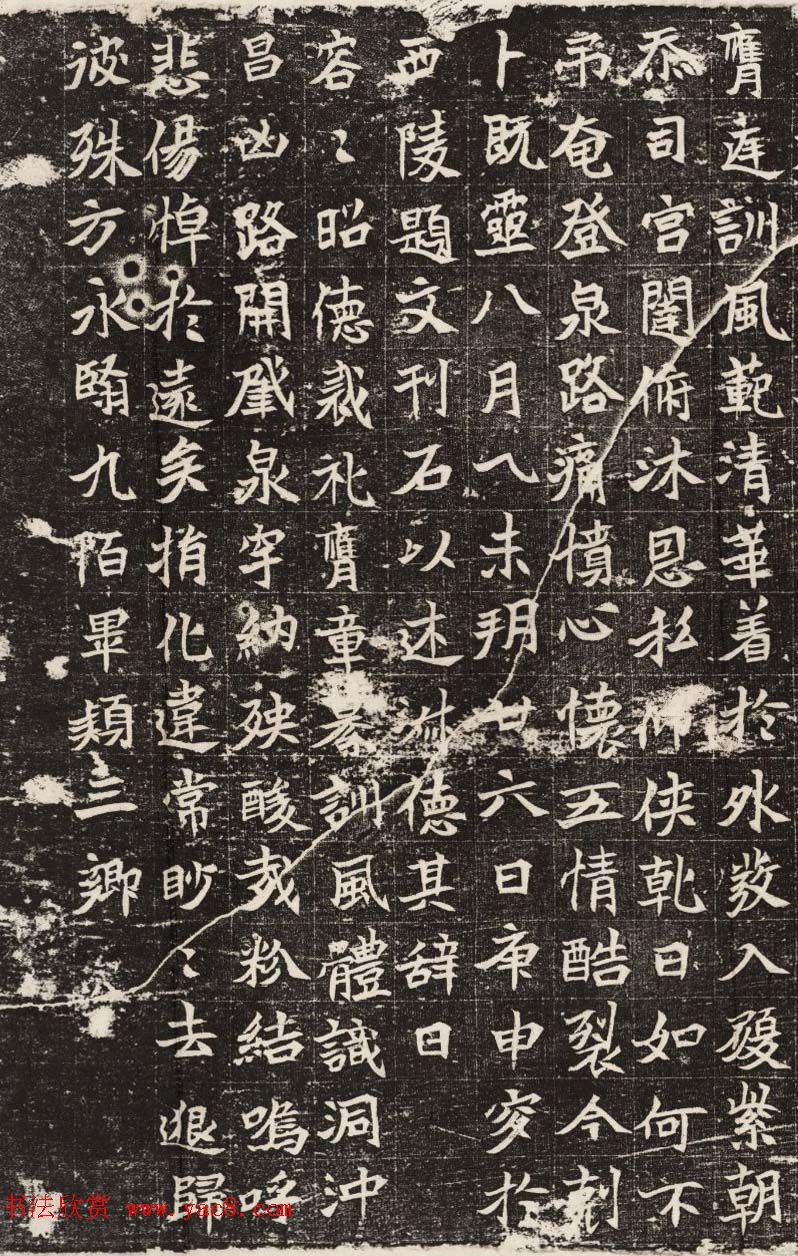 膺連訓風範清華着於外敎入履紫朝
忝司宮闈俯沐恩私仰俠乹日如何不
弔奄登泉路痛憤心懷五情酷裂今剋
卜既靈八月乁未玥廿六日庚申窆於
西陵題文刊石以述德其辞曰
容〻昭德裁礼膺童訓風體識洞沖
昌凶路開泉宇納殃酸哉粉結嗚呼
悲傷悼於遠矣捎化違常眇〻去退歸
彼殊方永翳九陌畢類三卿
书法欣赏 www.yac8.com